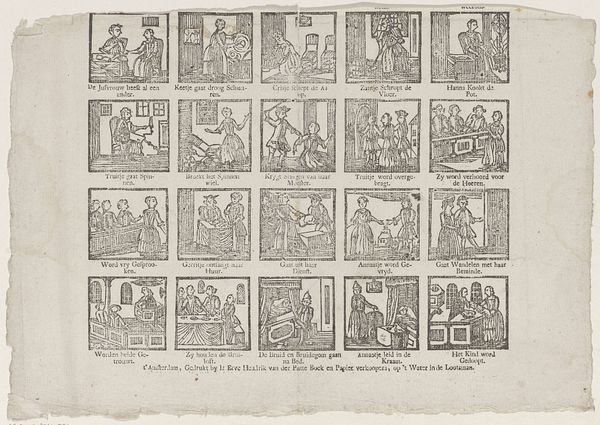 De Jufvrouw heeft al een
ander.
Keetje gaat droog Schuu-
ren.
Crisje schept de As
op.
Zantje Schropt de
Vloer.
Hanna Kookt de
Pot.
Truitje gaat Spin-
nen.
Breekt het Spinne-
wiel.
Krygt Slagen van haar
Meester.
Truitje word overge-
bragt.
Zy word verhoord voor
de Heeren.
Word vry Gesproo-
ken.
Gerritje ontfangt haar
Huur.
Gaat uit haar
Dienst.
Annaatje word Ge-
vryd.
Gaat Wandelen met haar
Beminde.
Worden beide Ge-
trouwt.
Zy houden de Brui-
loft.
De Bruid en Bruidegom gaan
na Bed.
Annaatje leid in de
Kraam.
Het Kind word
Gedoopt.
t'Amsterdam, Gedrukt by de Erve Hendrik van der Putte Boek en Papier verkoopers, op 't Water in de Lootsman.